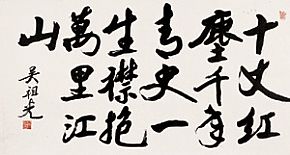 十丈紅
塵千年
青史一
生襟抱
萬里江
山
吳祖光